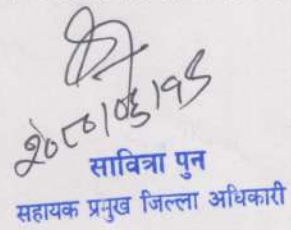 २०८०।०६।१८
सावित्रा पुन
सहायक प्रमुख जिल्ला अधिकारी